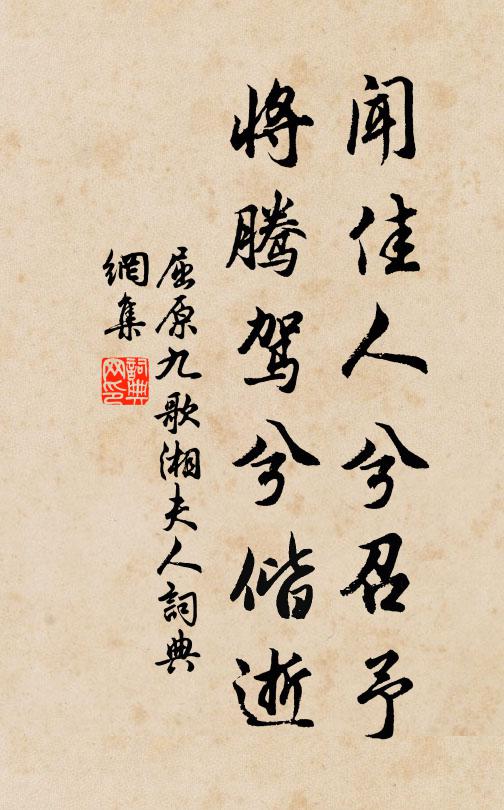 闻佳人兮召予
将腾驾兮偕逝
屈原九歌湘夫人詞典
網集
詞典
网印